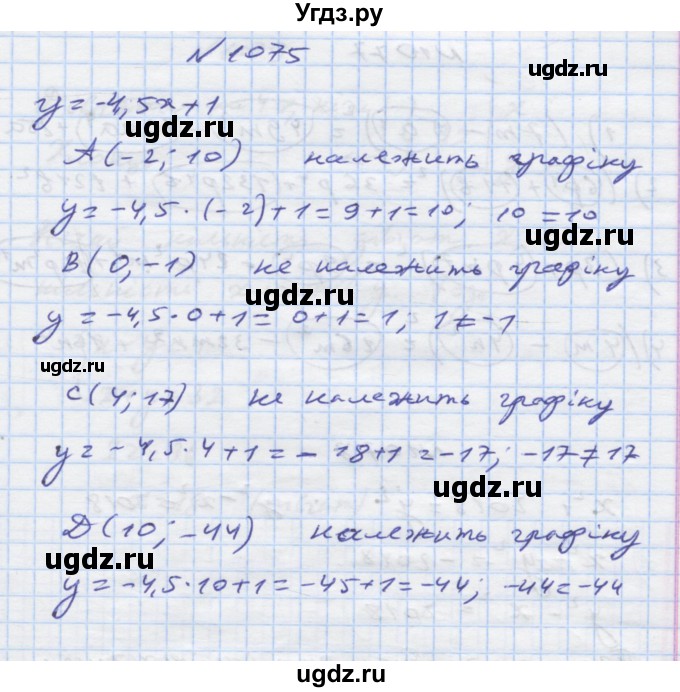 Угдз.ру
№1075
y = -4,5x + 1
A(-2; 10) належить графіку
y = -4,5 · (-2) + 1 = 9 + 1 = 10; 10 = 10
B(0; -1) не належить графіку
y = -4,5 · 0 + 1 = 0 + 1 = 1; 1 ≠ -1
C(4; 17) не належить графіку
y = -4,5 · 4 + 1 = -18 + 1 = -17; -17 ≠ 17
D(10; -44) належить графіку
y = -4,5 · 10 + 1 = -45 + 1 = -44; -44 = -44
udgz.ru
udgz.ru
udgz.ru
udgz.ru
udgz.ru
udgz.ru
udgz.ru
udgz.ru
udgz.ru
udgz.ru